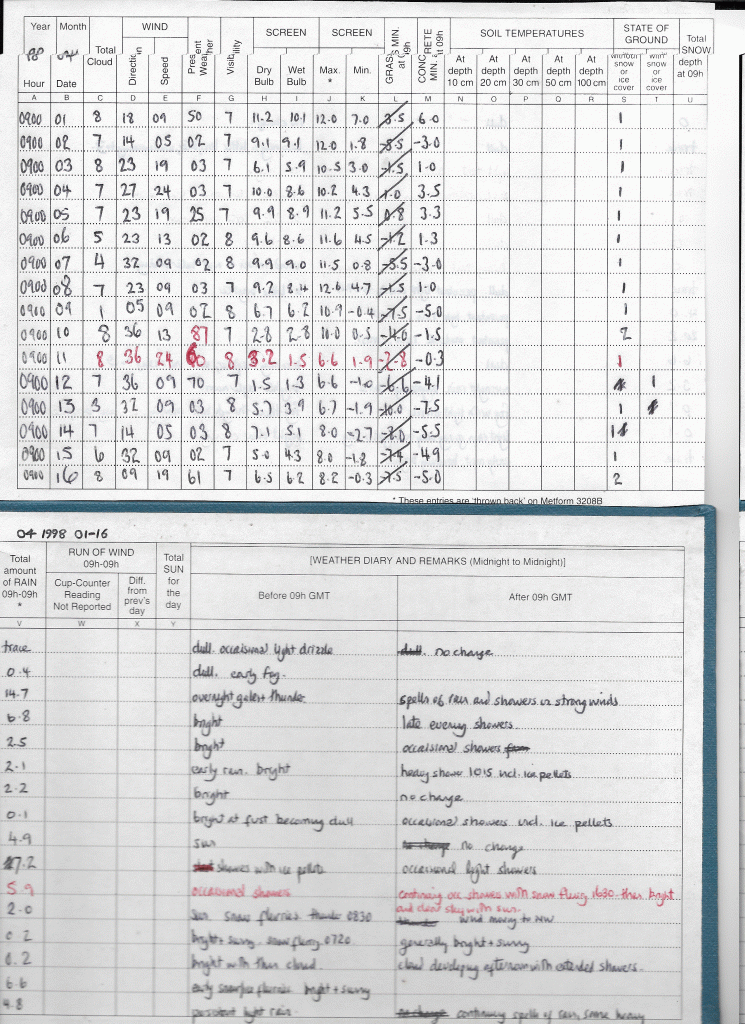 Year Month Total Cloud WIND Present Weather Visibility SCREEN SCREEN GRASS MIN. at 09h CONCRETE MIN. at 09h SOIL TEMPERATURES STATE OF GROUND Total SNOW depth at 09h
98 04 Direction Speed Dry Bulb Wet Bulb Max. * Min. At depth 10 cm At depth 20 cm At depth 30 cm At depth 50 cm At depth 100 cm without snow or ice cover with snow or ice cover
Hour Date
A B C D E F G H I J K L M N O P Q R S T U
0900 01 8 18 09 50 7 11.2 10.1 12.0 7.0 3.5 6.0 1
0900 02 7 14 05 02 7 9.1 9.1 12.0 1.8 -8.5 -3.0 1
0900 03 8 23 19 03 7 6.1 5.9 10.5 3.0 -1.5 1.0 1
0900 04 7 27 24 03 7 10.0 8.6 10.2 4.3 1.0 3.5 1
0900 05 7 23 19 25 7 9.9 8.9 11.2 5.5 0.8 3.3 1
0900 06 5 23 13 02 8 9.6 8.6 11.6 4.5 -1.2 1.3 1
0900 07 4 32 09 02 8 9.9 9.0 11.5 0.8 -5.5 -3.0 1
0900 08 7 23 09 03 7 9.2 8.4 12.6 4.7 -1.5 1.0 1
0900 09 1 05 09 02 8 6.7 6.2 10.9 -0.4 -7.5 -5.0 1
0900 10 8 36 13 87 7 2.8 2.8 10.0 0.5 -4.0 -1.5 2
0900 11 8 36 24 60 8 3.2 1.5 6.6 1.9 -2.8 -0.3 1
0900 12 7 36 09 70 7 1.5 1.3 6.6 -1.0 -6.6 -4.1 1
0900 13 3 32 09 03 8 5.7 3.9 6.7 -1.9 -10.0 -7.5 1
0900 14 7 14 05 03 8 7.1 5.1 8.0 -2.7 -8.0 -5.5 1
0900 15 6 32 09 02 7 5.0 4.3 8.0 -1.8 -7.4 -4.9 1
0900 16 8 09 19 61 7 6.5 6.2 8.2 -0.3 -7.5 -5.0 2
* These entries are 'thrown back' on Metform 3208B
04 1998 01-16
Total amount of RAIN 09h-09h * RUN OF WIND 09h-09h Total SUN for the day [WEATHER DIARY AND REMARKS (Midnight to Midnight)]
Cup-Counter Reading Not Reported Diff. from prev's day Before 09h GMT After 09h GMT
V W X Y
trace dull. occasional light drizzle dull. no change
0.4 dull. early fog.
14.7 overnight gales + thunder spells of rain and showers in strong winds
6.8 bright late evening showers
2.5 bright occasional showers
2.1 early rain. bright heavy shower 1015 incl. ice pellets
2.2 bright no change
0.1 bright at first becoming dull occasional showers incl. ice pellets
4.9 sun no change no change
7.2 showers with ice pellets occasional light showers
5.9 occasional showers continuing occ. showers with snow flurry 1630. then bright and clear sky with sun.
2.0 sun. snow flurries thunder 0830 wind moving to
0.2 bright + sunny. snow flurry 0720 generally bright + sunny
0.2 bright with thin cloud. cloud developing afternoon with extended showers.
6.6 early snow/ice flurries bright + sunny
4.8 persistent light rain. no change continuing spells of rain, some heavy